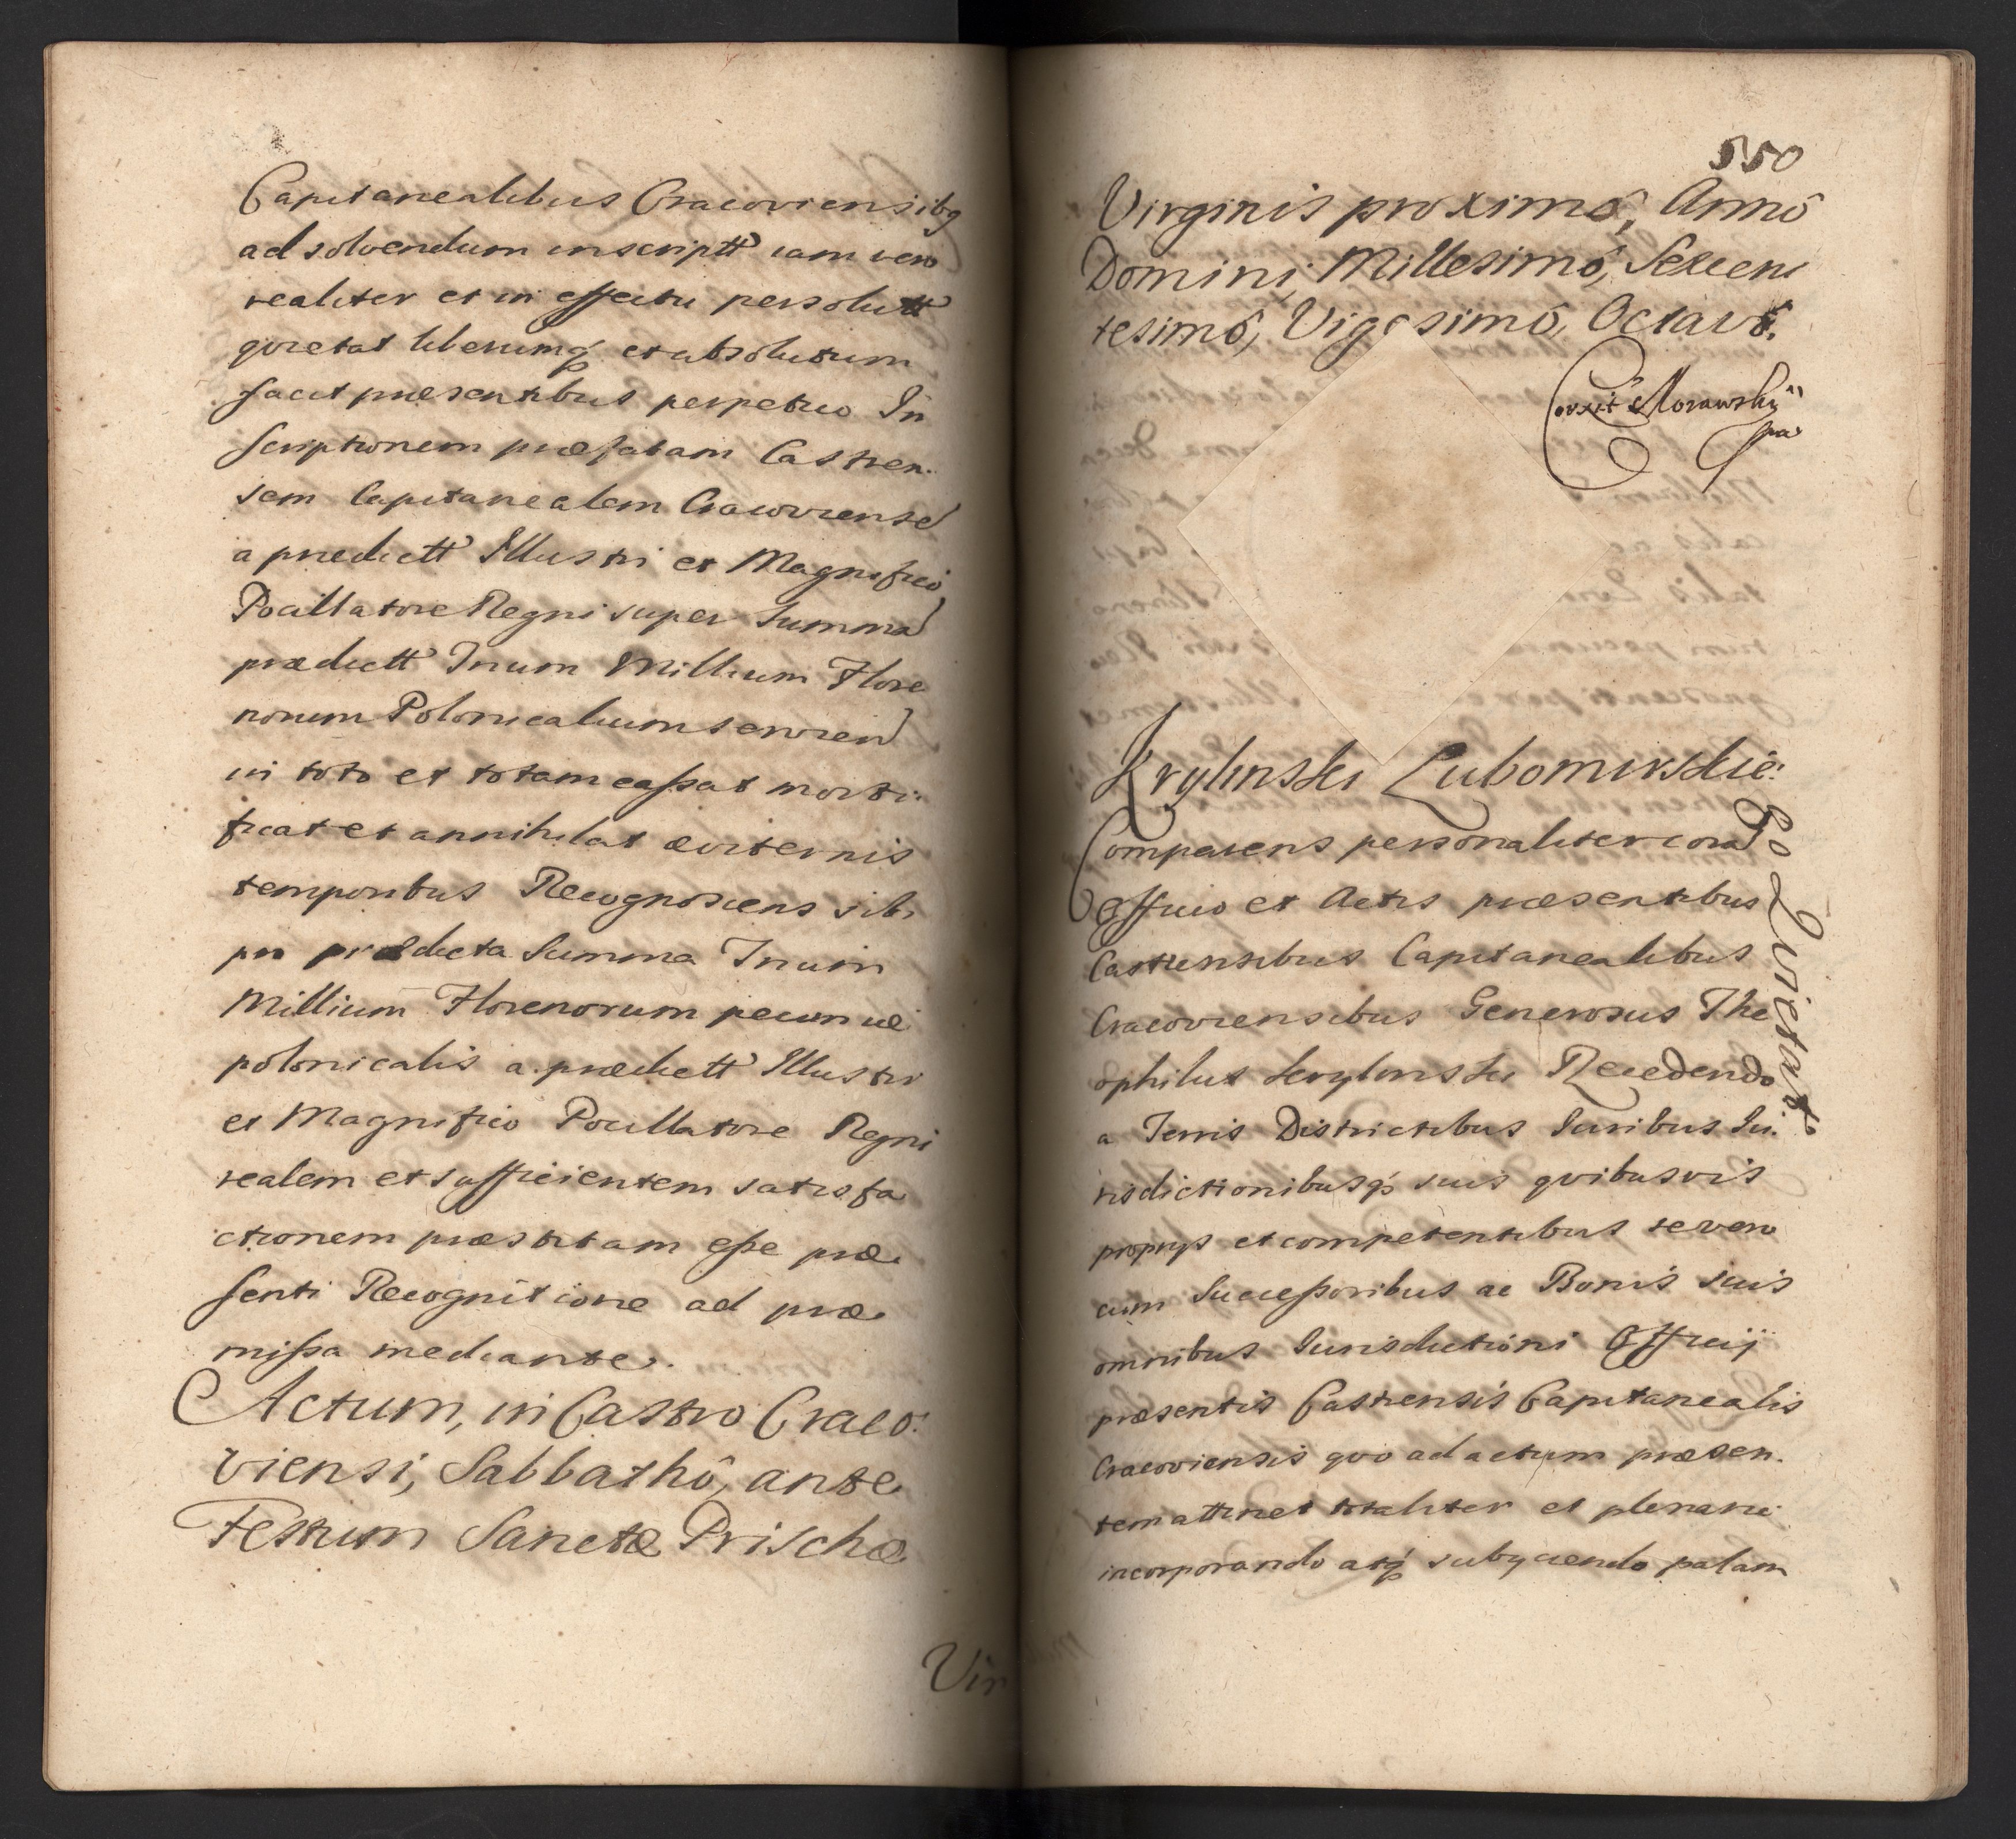 Capitanealibus Cracoviensibq
ad solvendum inscriptt iam vero
realiter et in effectu persolutt
qvietat liberumq et absolutum
facit praesentibus perpetuo In
scriptionem praefatam Castren.
sem Capitanealem Cracoviense
a praedictt Illustri et Magnifico
Pocillatore Regni super summa
praedictt Trium Millium Flore
norum Polonicalium servien
in toto et totam cassat morti.
ficat et annihilat aviternis
temporibus Recognoscens sibi
pro praedicta Summa Trium
Millium Florenorum pecuniae
polonicalis a praedictt Illustri
et Magnifico Pocillatore Regni
realem et sufficientem satisfa
ctionem praestitam esse prae.
senti Recognitione ad prae.
missa mediante.
Actum, in Castro Craco:
viensi, Sabbathô, ante
Festum Sanctæ Prischæ
Vir
550
Virginis proximô, Annô
Domini, Millesimô, Sexcen
tesimô, Vigesimô, Octavô.
Correxit Morawsky
mpa
Krylinski Lubomirskie:
Comparens personaliter cora
Officio et Actis praesentibus
Castrensibus Capitanealibus
Cracoviensibus Generosus The
ophilus Krylinski Recedendo
a Terris Districtibus Iuribus Iu.
risdictionibusq suis qvibusvis
proprys et competentibus se vero
cum Successoribus ac Bonis suis
omnibus Iurisdictioni Officij
praesentis Castrensis Capitanealis
Cracoviensis qvo ad actum praesen.
tem attinet totaliter et plenarie
incorporando atq subyciendo palam
Qvietat